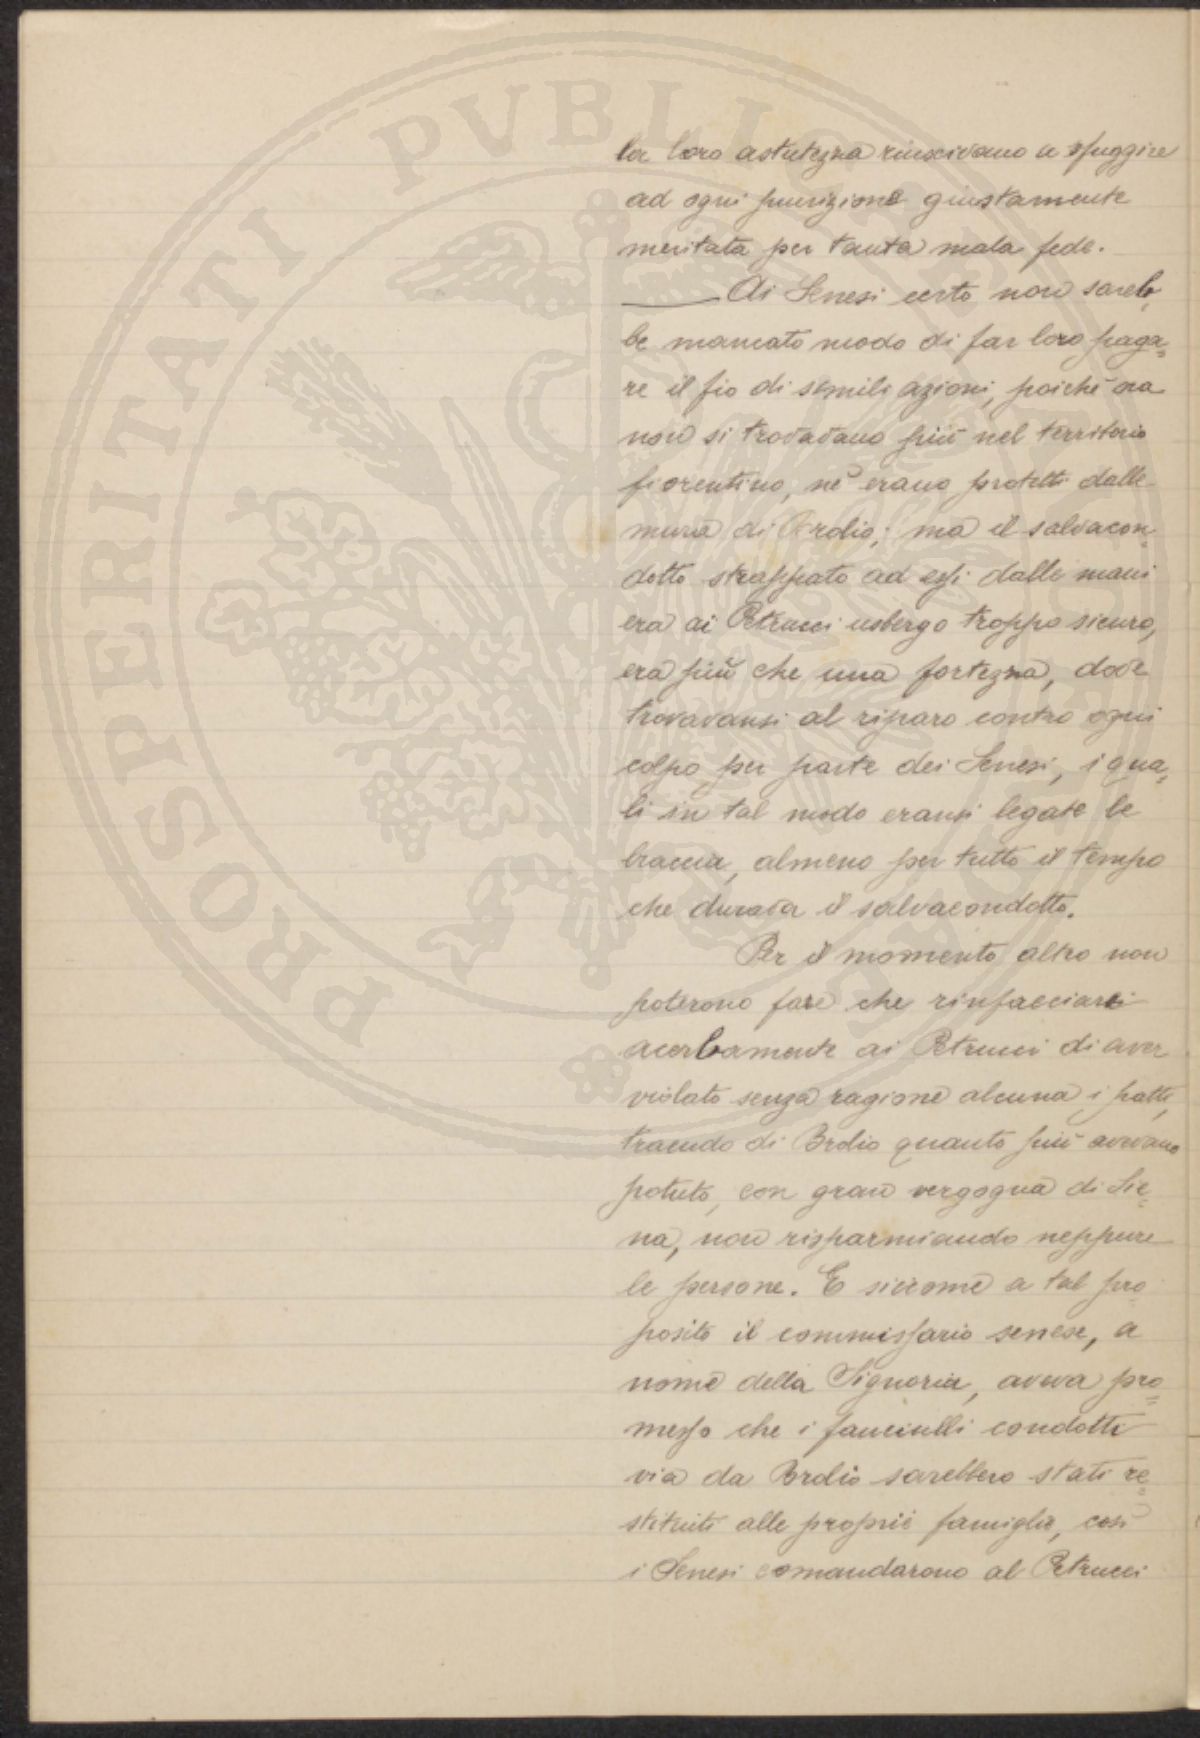 la loro astutezza riuscivano a sfuggire
ad ogni punizione giustamente
meritata per tanta mala fede.
Ai Senesi certo non sareb=
be mancato modo di far loro paga=
re il fio di simili azioni, poichè ora
non si trovavano più nel territorio
fiorentino, nè erano protetti dalle
mura di Brolio; ma il salvacon=
dotto strappato ad essi dalle mani
era ai Petrucci usbergo troppo sicuro,
era più che una fortezza, dove
trovavansi al riparo contro ogni
colpo per parte dei Senesi, i qua=
li in tal modo eransi legate le
braccia, almeno per tutto il tempo
che durava il salvacondotto.
Per il momento altro non
poterono fare che rinfacciare
acerbamente ai Petrucci di aver
violato senza ragione alcuna i patti,
traendo di Brolio quanto più avevano
potuto, con gran vergogna di Sie=
na, non risparmiando neppure
le persone. E siccome a tal pro=
posito il commissario senese, a
nome della Signoria, aveva pro=
messo che i fanciulli condotti
via da Brolio sarebbero stati re=
stituiti alle proprie famiglie, così
i Senesi comandarono al Petrucci
PROSPERITATI PVBLICAE